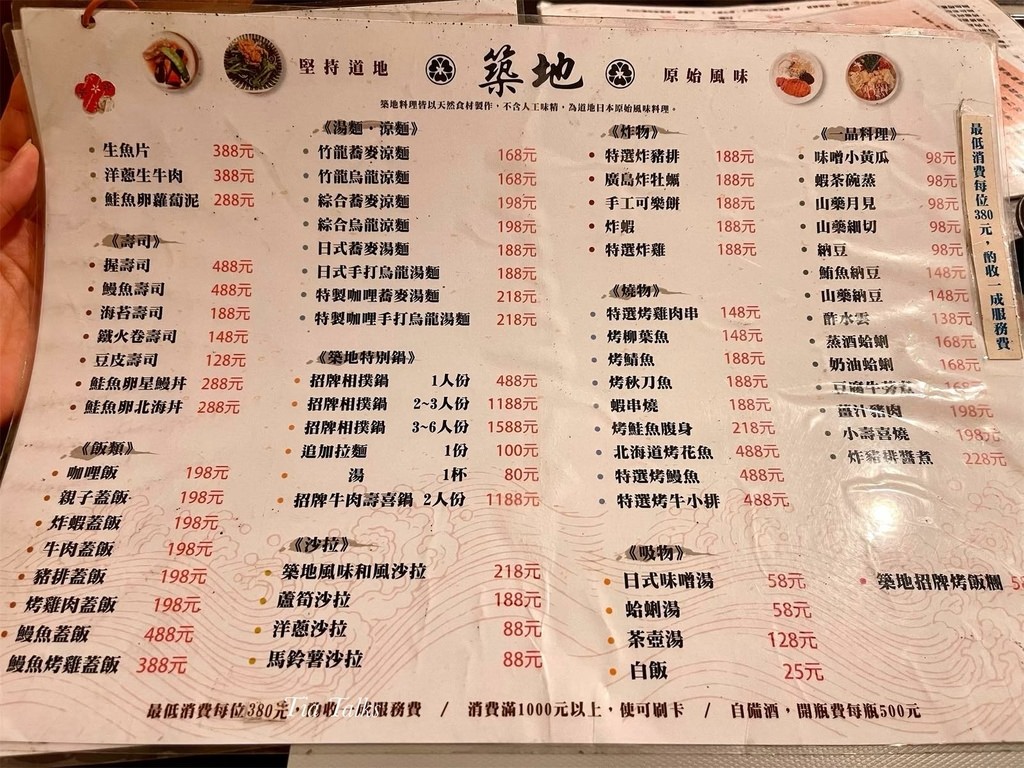 堅持道地
築地
原始風味
築地料理皆以天然食材製作，不含人工味精，為道地日本原始風味料理。
生魚片 388元
洋蔥生牛肉 388元
鮭魚卵蘿蔔泥 288元
《壽司》
握壽司 488元
鰻魚壽司 488元
海苔壽司 188元
鐵火卷壽司 148元
豆皮壽司 128元
鮭魚卵星鰻丼 288元
鮭魚卵北海丼 288元
《飯類》
咖哩飯 198元
親子蓋飯 198元
炸蝦蓋飯 198元
牛肉蓋飯 198元
豬排蓋飯 198元
烤雞肉蓋飯 198元
鰻魚蓋飯 488元
鰻魚烤雞蓋飯 388元
《湯麵．涼麵》
竹籠蕎麥涼麵 168元
竹籠烏龍涼麵 168元
綜合蕎麥涼麵 198元
綜合烏龍涼麵 198元
日式蕎麥湯麵 188元
日式手打烏龍湯麵 188元
特製咖哩蕎麥湯麵 218元
特製咖哩手打烏龍湯麵 218元
《築地特別鍋》
招牌相撲鍋 1人份 488元
招牌相撲鍋 2~3人份 1188元
招牌相撲鍋 3~6人份 1588元
追加拉麵 1份 100元
湯 1杯 80元
招牌牛肉壽喜鍋 2人份 1188元
《沙拉》
築地風味和風沙拉 218元
蘆筍沙拉 188元
洋蔥沙拉 88元
馬鈴薯沙拉 88元
《炸物》
特選炸豬排 188元
廣島炸牡蠣 188元
手工可樂餅 188元
炸蝦 188元
特選炸雞 188元
《燒物》
特選烤雞肉串 148元
烤柳葉魚 148元
烤鯖魚 188元
烤秋刀魚 188元
蝦串燒 188元
烤鮭魚腹身 218元
北海道烤花魚 488元
特選烤鰻魚 488元
特選烤牛小排 488元
《吸物》
日式味噌湯 58元
蛤蜊湯 58元
茶壺湯 128元
白飯 25元
《一品料理》
味噌小黃瓜 98元
蝦茶碗蒸 98元
山藥月見 98元
山藥細切 98元
納豆 98元
鮪魚納豆 148元
山藥納豆 148元
酢水雲 138元
蒸酒蛤蜊 168元
奶油蛤蜊 168元
豆腐牛蒡煮 168元
薑汁豬肉 198元
小壽喜燒 198元
炸豬排醬煮 228元
築地招牌烤飯糰
最低消費每位380元，酌收一成服務費
最低消費每位380元，酌收一成服務費 / 消費滿1000元以上，便可刷卡 / 自備酒，開瓶費每瓶500元